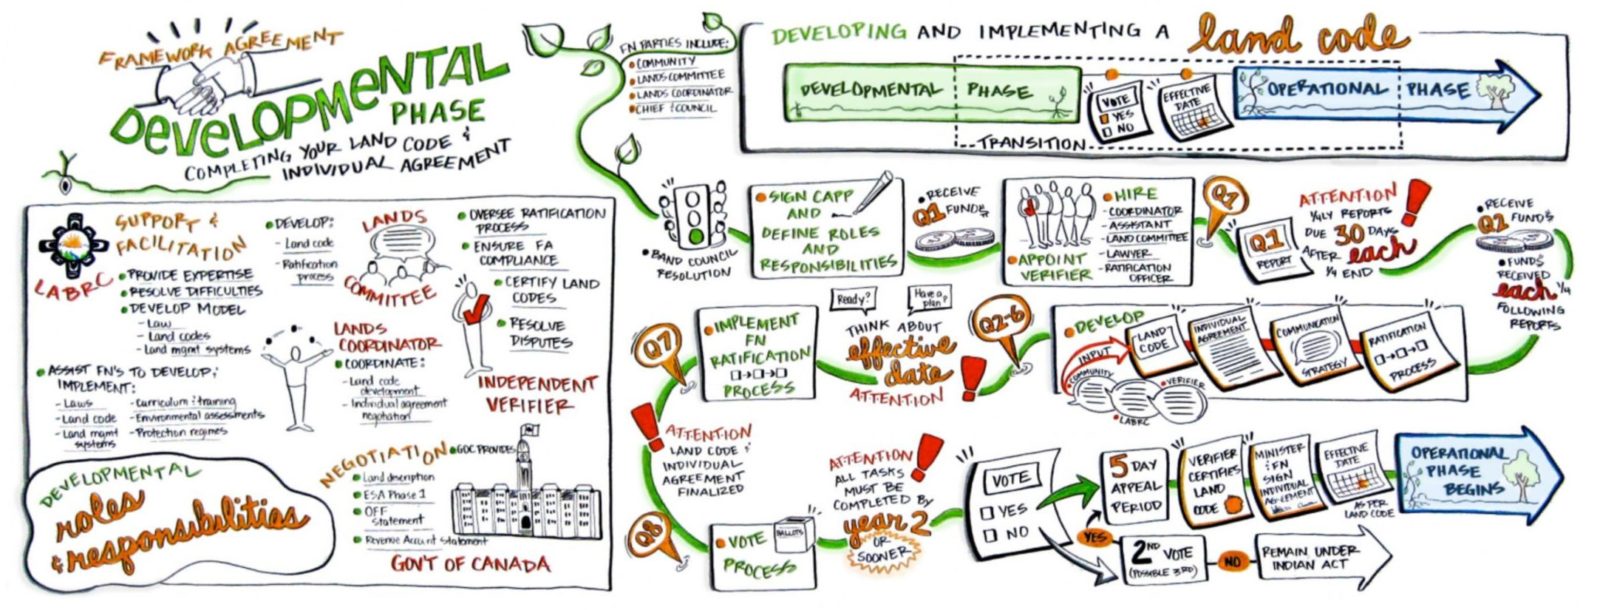 FRAMEWORK AGREEMENT
DEVELOPMENTAL
PHASE
COMPLETING YOUR LAND CODE &
INDIVIDUAL AGREEMENT
FN PARTIES INCLUDE:
COMMUNITY
LANDS COMMITTEE
LANDS COORDINATOR
CHIEF & COUNCIL
DEVELOPING AND IMPLEMENTING A land code
DEVELOPMENTAL PHASE
VOTE
YES
NO
EFFECTIVE
DATE
OPERATIONAL PHASE
TRANSITION
LABRC
SUPPORT &
FACILITATION
PROVIDE EXPERTISE
RESOLVE DIFFICULTIES
DEVELOP MODEL
- Law
- Land codes
- Land mgmt systems
ASSIST FN'S TO DEVELOP &
IMPLEMENT:
- Laws
- Land code
- Land mgmt
systems
- Curriculum & training
- Environmental assessments
- Protection regimes
DEVELOP:
- Land code
- Ratification
process
LANDS
COMMITTEE
LANDS
COORDINATOR
COORDINATE:
- Land code
development
- Individual agreement
negotiation
OVERSEE RATIFICATION
PROCESS
ENSURE FA
COMPLIANCE
CERTIFY LAND
CODES
RESOLVE
DISPUTES
INDEPENDENT
VERIFIER
NEGOTIATION
GOC PROVIDES
Land description
ESA Phase 1
OFF
Statement
Revenue Account Statement
GOV'T OF CANADA
DEVELOPMENTAL
roles
& responsibilities
BAND COUNCIL
RESOLUTION
SIGN CAPP
AND
DEFINE ROLES
AND
RESPONSIBILITIES
RECEIVE
Q1 FUNDS
APPOINT
VERIFIER
HIRE
- COORDINATOR
- ASSISTANT
- LAND COMMITTEE
- LAWYER
- RATIFICATION
OFFICER
Q1
REPORT
ATTENTION
¼LY REPORTS
DUE 30 DAYS
AFTER each
¼ END
RECEIVE
Q2 FUNDS
FUNDS
RECEIVED
each ¼
FOLLOWING
REPORTS
DEVELOP
LAND
CODE
INDIVIDUAL
AGREEMENT
COMMUNICATION
STRATEGY
RATIFICATION
PROCESS
INPUT
COMMUNITY
VERIFIER
LABRC
Q2-6
Ready?
Have a
plan?
THINK ABOUT
effective
date
ATTENTION
IMPLEMENT
FN
RATIFICATION
PROCESS
Q7
ATTENTION
LAND CODE &
INDIVIDUAL
AGREEMENT
FINALIZED
Q8
VOTE
PROCESS
BALLOTS
ATTENTION
ALL TASKS
MUST BE
COMPLETED BY
year 2
OR
SOONER
VOTE
YES
NO
5 DAY
APPEAL
PERIOD
VERIFIER
CERTIFIES
LAND
CODE
MINISTER
& FN
SIGN
INDIVIDUAL
AGREEMENT
EFFECTIVE
DATE
AS PER
LAND CODE
OPERATIONAL
PHASE
BEGINS
YES
2ND
VOTE
(POSSIBLE 3RD)
NO
REMAIN UNDER
INDIAN ACT